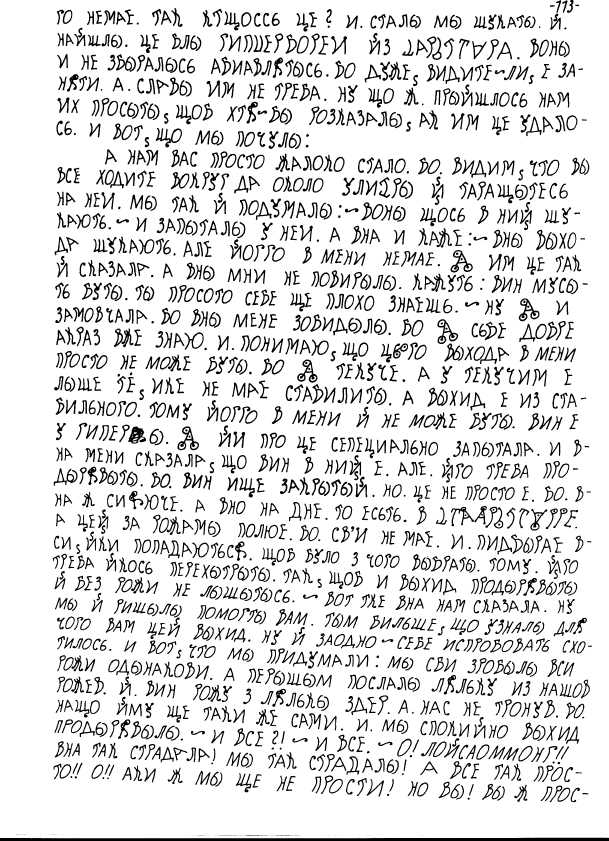 -113-
ГО НЕМАЕ. ТАК КТЩОССЬ ЦЕ? И. СТАЛЫ МЫ ШУКАТЫ. Й.
НАЙШЛЫ. ЦЕ БЛЫ ЙЗ ВОНЫ
И НЕ ЗБЫРАЛЫСЬ АВИАВЛЯТЫСЬ. БО ДУЖЕ, ВИДИТЕ~ЛИ, Е ЗА-
НЯТИ. А. СЛАВЫ ИМ НЕ ТРЕБА. НУ ЩО Ж. ПРЫЙШЛОСЬ НАМ
ИХ ПРОСЫТЫ, ЩОБ ХТЯ~БЫ РОЗКАЗАЛЫ, АК ИМ ЦЕ УДАЛО-
СЬ. И ВОТ, ЩО МЫ ПОЧУЛЫ:
А НАМ ВАС ПРОСТО ЖАЛОКО СТАЛО. БО, ВИДИМ, ЧТО ВЫ
ВСЕ ХОДИТЕ ВОКРУГ ДА ОКОЛО УЛИТРЫ Й ТАРАЩЫТЕСЬ
НА НЕИ. МЫ ТАК Й ПОДУМАЛЫ:~ ВОНЫ ЩОСЬ В НИЙ ШУ-
КАЮТЬ.~ И ЗАПЫТАЛЫ У НЕИ. А ВНА И КАЖЕ:~ ВНЫ ВЫХО-
ДА ШУКАЮТЬ. АЛЕ ЙОГГО В МЕНИ НЕМАЕ. ИМ ЦЕ ТАК
Й СКАЗАЛА. А ВНЫ МНИ НЕ ПОВИРЫЛЫ. КАЖУТЬ: ВИН МУСЫ-
ТЬ БУТЫ. ТЫ ПРОСОТО СЕБЕ ЩЕ ПЛОХО ЗНАЕШЬ.~ НУ И
ЗАМОВЧАЛА. БО ВНЫ МЕНЕ ЗОБИДЫЛЫ. БО СЕБЕ ДОБРЕ
АКРАЗ ВЖЕ ЗНАЮ. И. ПОНИМАЮ, ЩО ВЫХОДА В МЕНИ
ПРОСТО НЕ МОЖЕ БУТЫ. БО ТЕКУЧЕ. А У ТЕКУЧИМ Е
ЛЫШЕ ТЕ, ИКЕ НЕ МАЕ СТАБИЛИТЫ. А ВЫХИД Е ИЗ СТА-
БИЛЬНОГО. ТОМУ ЙОГГО В МЕНИ Й НЕ МОЖЕ БУТЫ. ВИН Е
У ЙИ ПРО ЦЕ СЕПЕЦИАЛЬНО ЗАПЫТАЛА. И В-
НА МЕНИ СКАЗАЛА, ЩО ВИН В НИЙ Е. АЛЕ. ЙГО ТРЕБА ПРО-
ДЫРЯВЫТЫ. БО. ВИН ИЩЕ ЗАКРЫТЫЙ. НО. ЦЕ НЕ ПРОСТО Е. БО. В-
НА Ж СИЯЮЧЕ. А ВНО НА ДНЕ. ТО ЕСЬТЬ. В
А ЦЕЙ ЗА РОЖАМЫ ПОЛЮЕ. БО. СВ'И НЕ МАЕ. И. ПИДБЫРАЕ В-
СИ, ЙКИ ПОПАДАЮТЬСЯ. ЩОБ БУЛО З ЧОГО ВЫБРАТЫ. ТОМУ. ЙАГО
ТРЕБА ЙКОСЬ ПЕРЕХЫТРЫТЫ. ТАК, ЩОБ И ВЫХИД ПРОДЫРЯВЫТЫ
Й БЕЗ РОЖИ НЕ ЛЫШЫТЫСЬ.~ ВОТ ТКЕ ВНА НАМ СКАЗАЛА. НУ
МЫ Й РИШЫЛЫ ПОМОГТЫ ВАМ. ТЫМ БИЛЬШЕ, ЩО УЗНАЛЫ ДЛЯ
ЧОГО ВАМ ЦЕЙ ВЫХИД. НУ Й ЗАОДНО~СЕБЕ ИСПРОБОВАТЬ СХО-
ТИЛОСЬ. И ВОТ, ЧТО МЫ ПРИДУМАЛИ: МЫ СВИ ЗРОБЫЛЫ ВСИ
РОЖИ ОДЫНАКОВИ. А ПЕРЫШЫМ ПОСЛАЛЫ ЛЯЛЬКУ ИЗ НАШОВ
РОЖЕВ. Й. ВИН РОЖУ З ЛЯЛЬКЫ ЗДЕР. А. НАС НЕ ТРОНУВ. БО.
НАЩО ЙМУ ЩЕ ТАКИ ЖЕ САМИ. И. МЫ СПОКИЙНО ВЫХИД
ПРОДЫРЯВЫЛЫ.~ И ВСЕ?!~ И ВСЕ.~ О! ЛОЙСАОММОНГ!!
ВНА ТАК СТРАДАЛА! МЫ ТАК СТРАДАЛЫ! А ВСЕ ТАК ПРОС-
ТО!! О!! АКИ Ж МЫ ЩЕ НЕ ПРОСТИ! НО ВЫ! ВЫ Ж ПРОС-